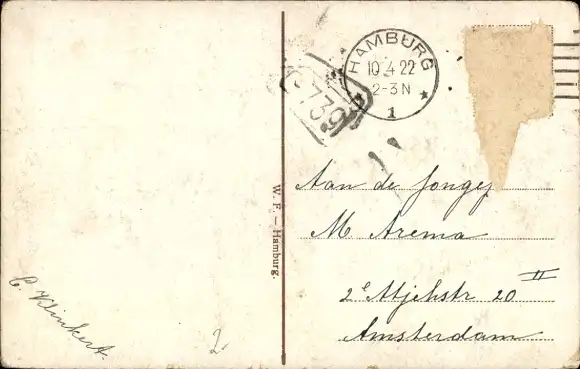 HAMBURG
10.4.22
2-3N
* 1 *
739
Aan de Jongej
M Arema
2e Atjehstr 20 II
Amsterdam
W. F. – Hamburg.
C. Klinkert.
2.